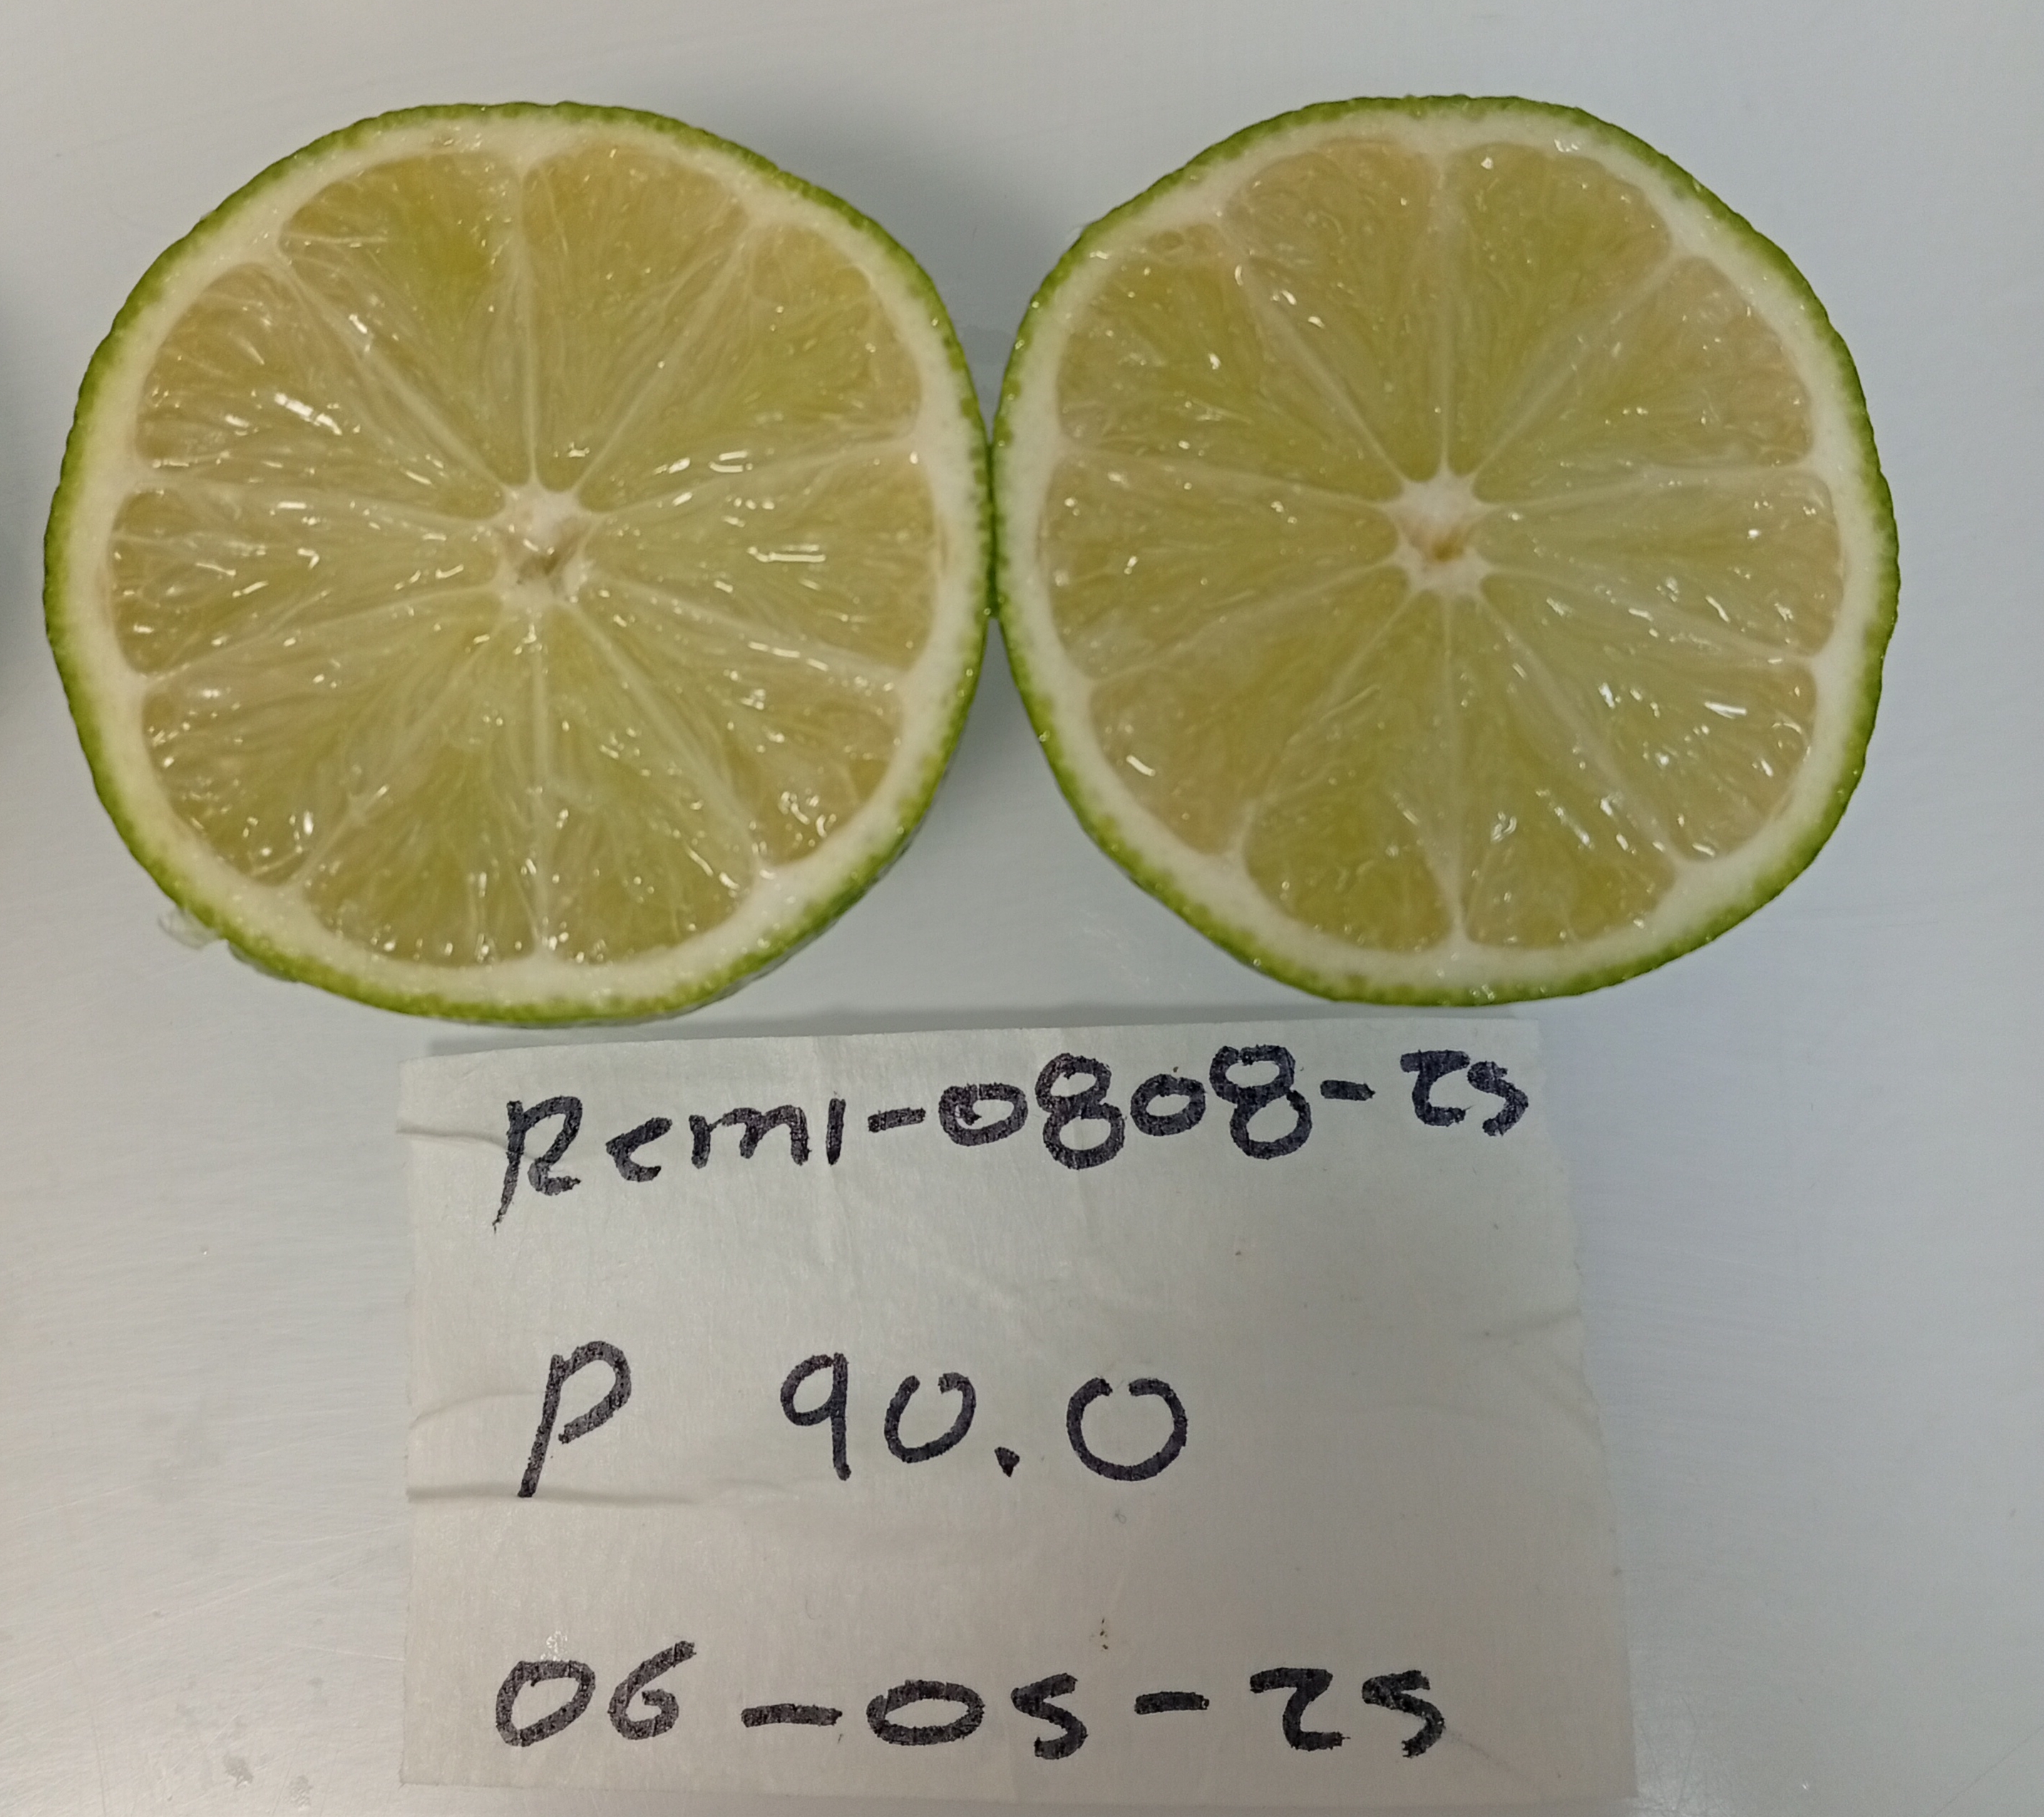 Remi-0808-25
P 90.0
06-05-25